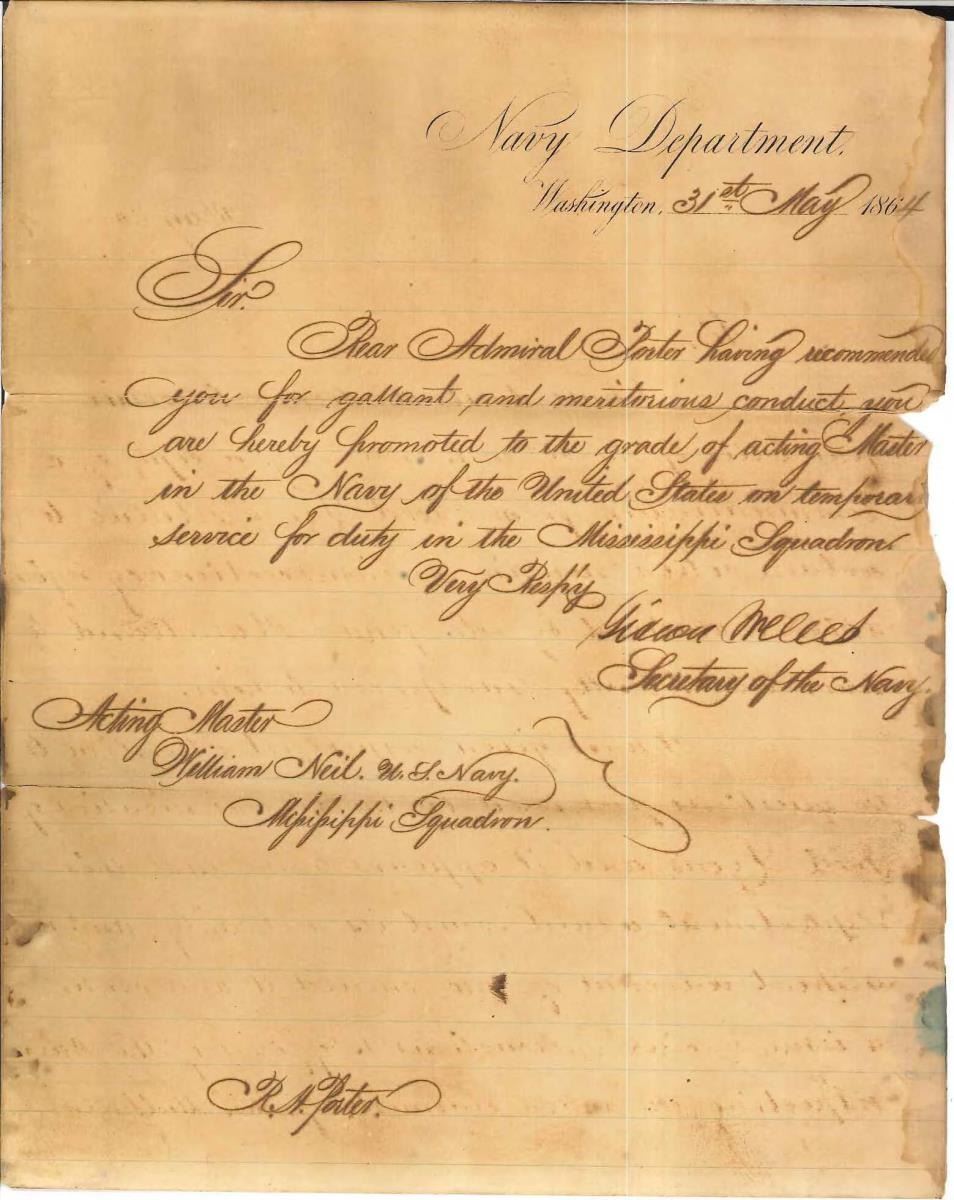 Navy Department.
Washington, 31st May 1864
Sir.
Rear Admiral Porter having recommended
you for gallant and meritorious conduct, you
are hereby promoted to the grade of acting Master
in the Navy of the United States on temporary
service for duty in the Mississippi Squadron.
Very Resp'y
Gideon Welles
Secretary of the Navy.
Acting Master
William Neil. U. S. Navy.
Mississippi Squadron.
R. A. Porter.